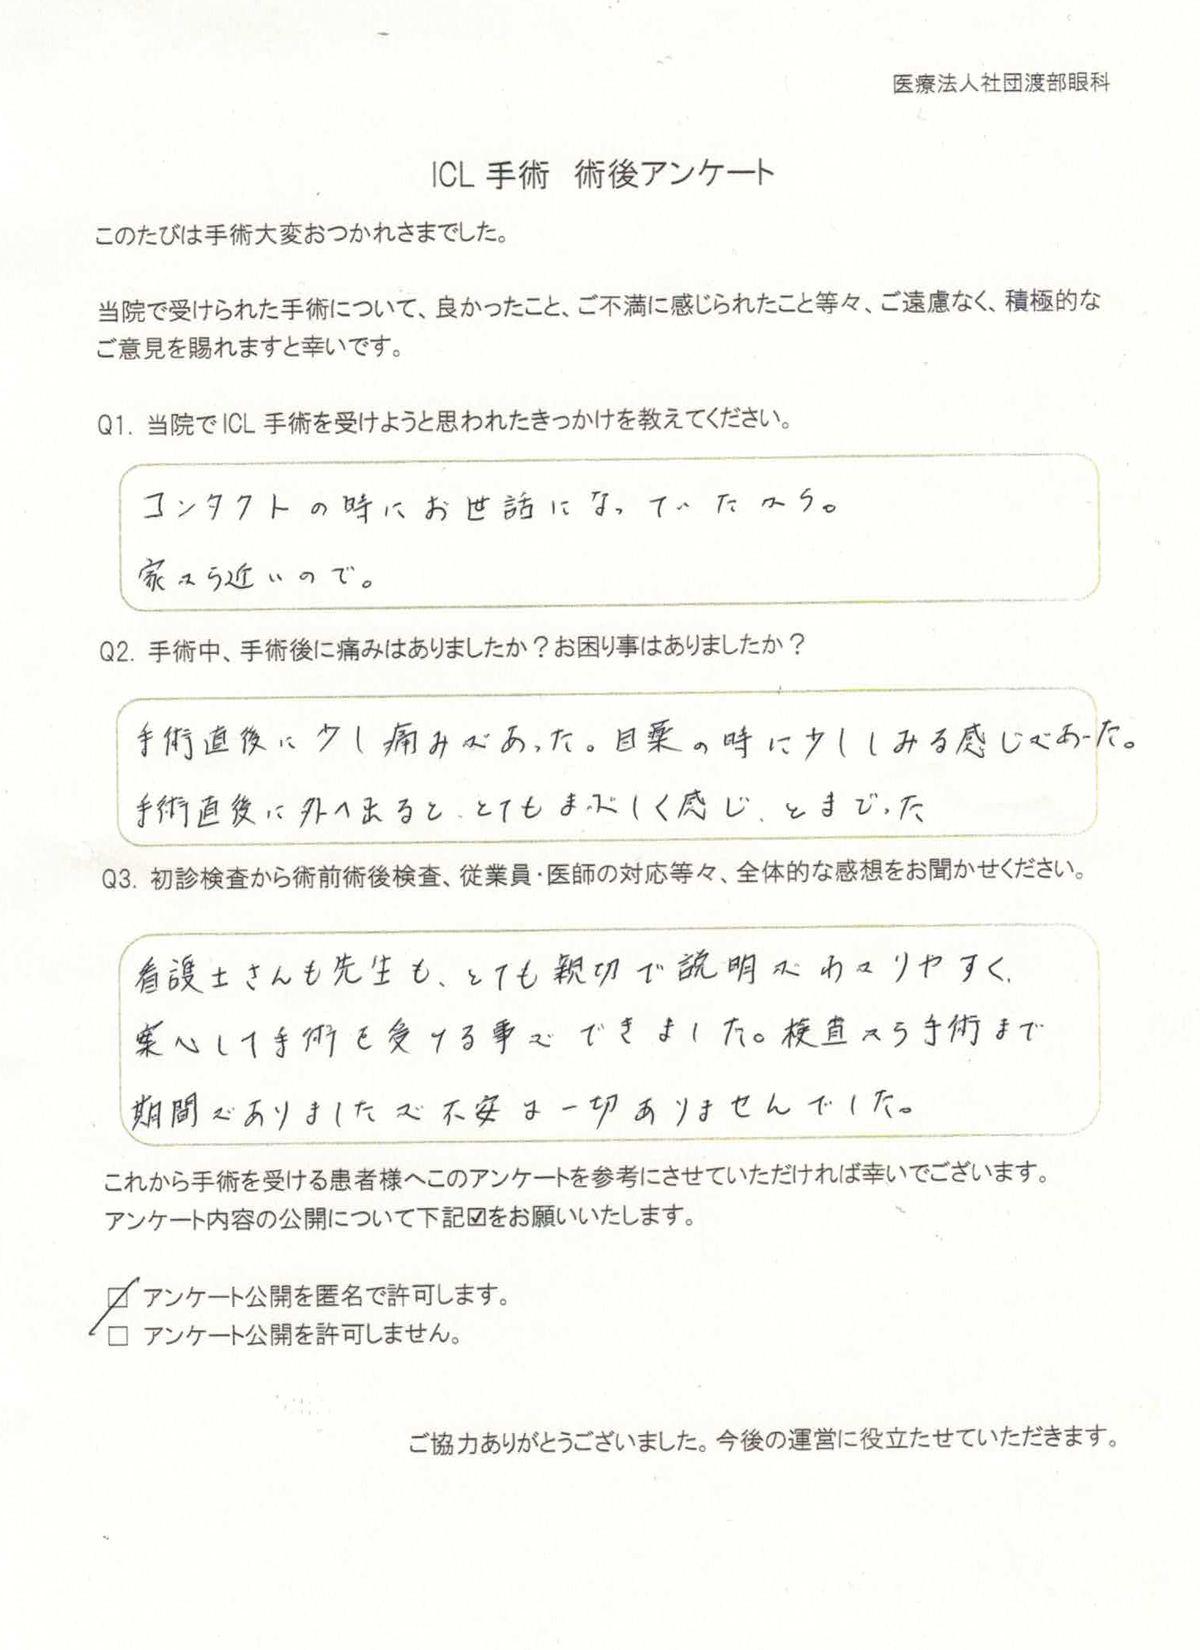 医療法人社団渡部眼科
ICL 手術 術後アンケート
このたびは手術大変おつかれさまでした。
当院で受けられた手術について、良かったこと、ご不満に感じられたこと等々、ご遠慮なく、積極的な
ご意見を賜れますと幸いです。
Q1. 当院でICL 手術を受けようと思われたきっかけを教えてください。
コンタクトの時にお世話になっていたから。
家から近いので。
Q2. 手術中、手術後に痛みはありましたか？お困り事はありましたか？
手術直後に少し痛みがあった。目薬の時に少ししみる感じがあった。
手術直後に外へ出ると、とてもまぶしく感じ、とまどった
Q3. 初診検査から術前術後検査、従業員・医師の対応等々、全体的な感想をお聞かせください。
看護士さんも先生も、とても親切で説明がわかりやすく、
案心して手術を受ける事ができました。検査から手術まで
期間がありましたが不安は一切ありませんでした。
これから手術を受ける患者様へこのアンケートを参考にさせていただければ幸いでございます。
アンケート内容の公開について下記☑をお願いいたします。
☑ アンケート公開を匿名で許可します。
□ アンケート公開を許可しません。
ご協力ありがとうございました。今後の運営に役立たせていただきます。